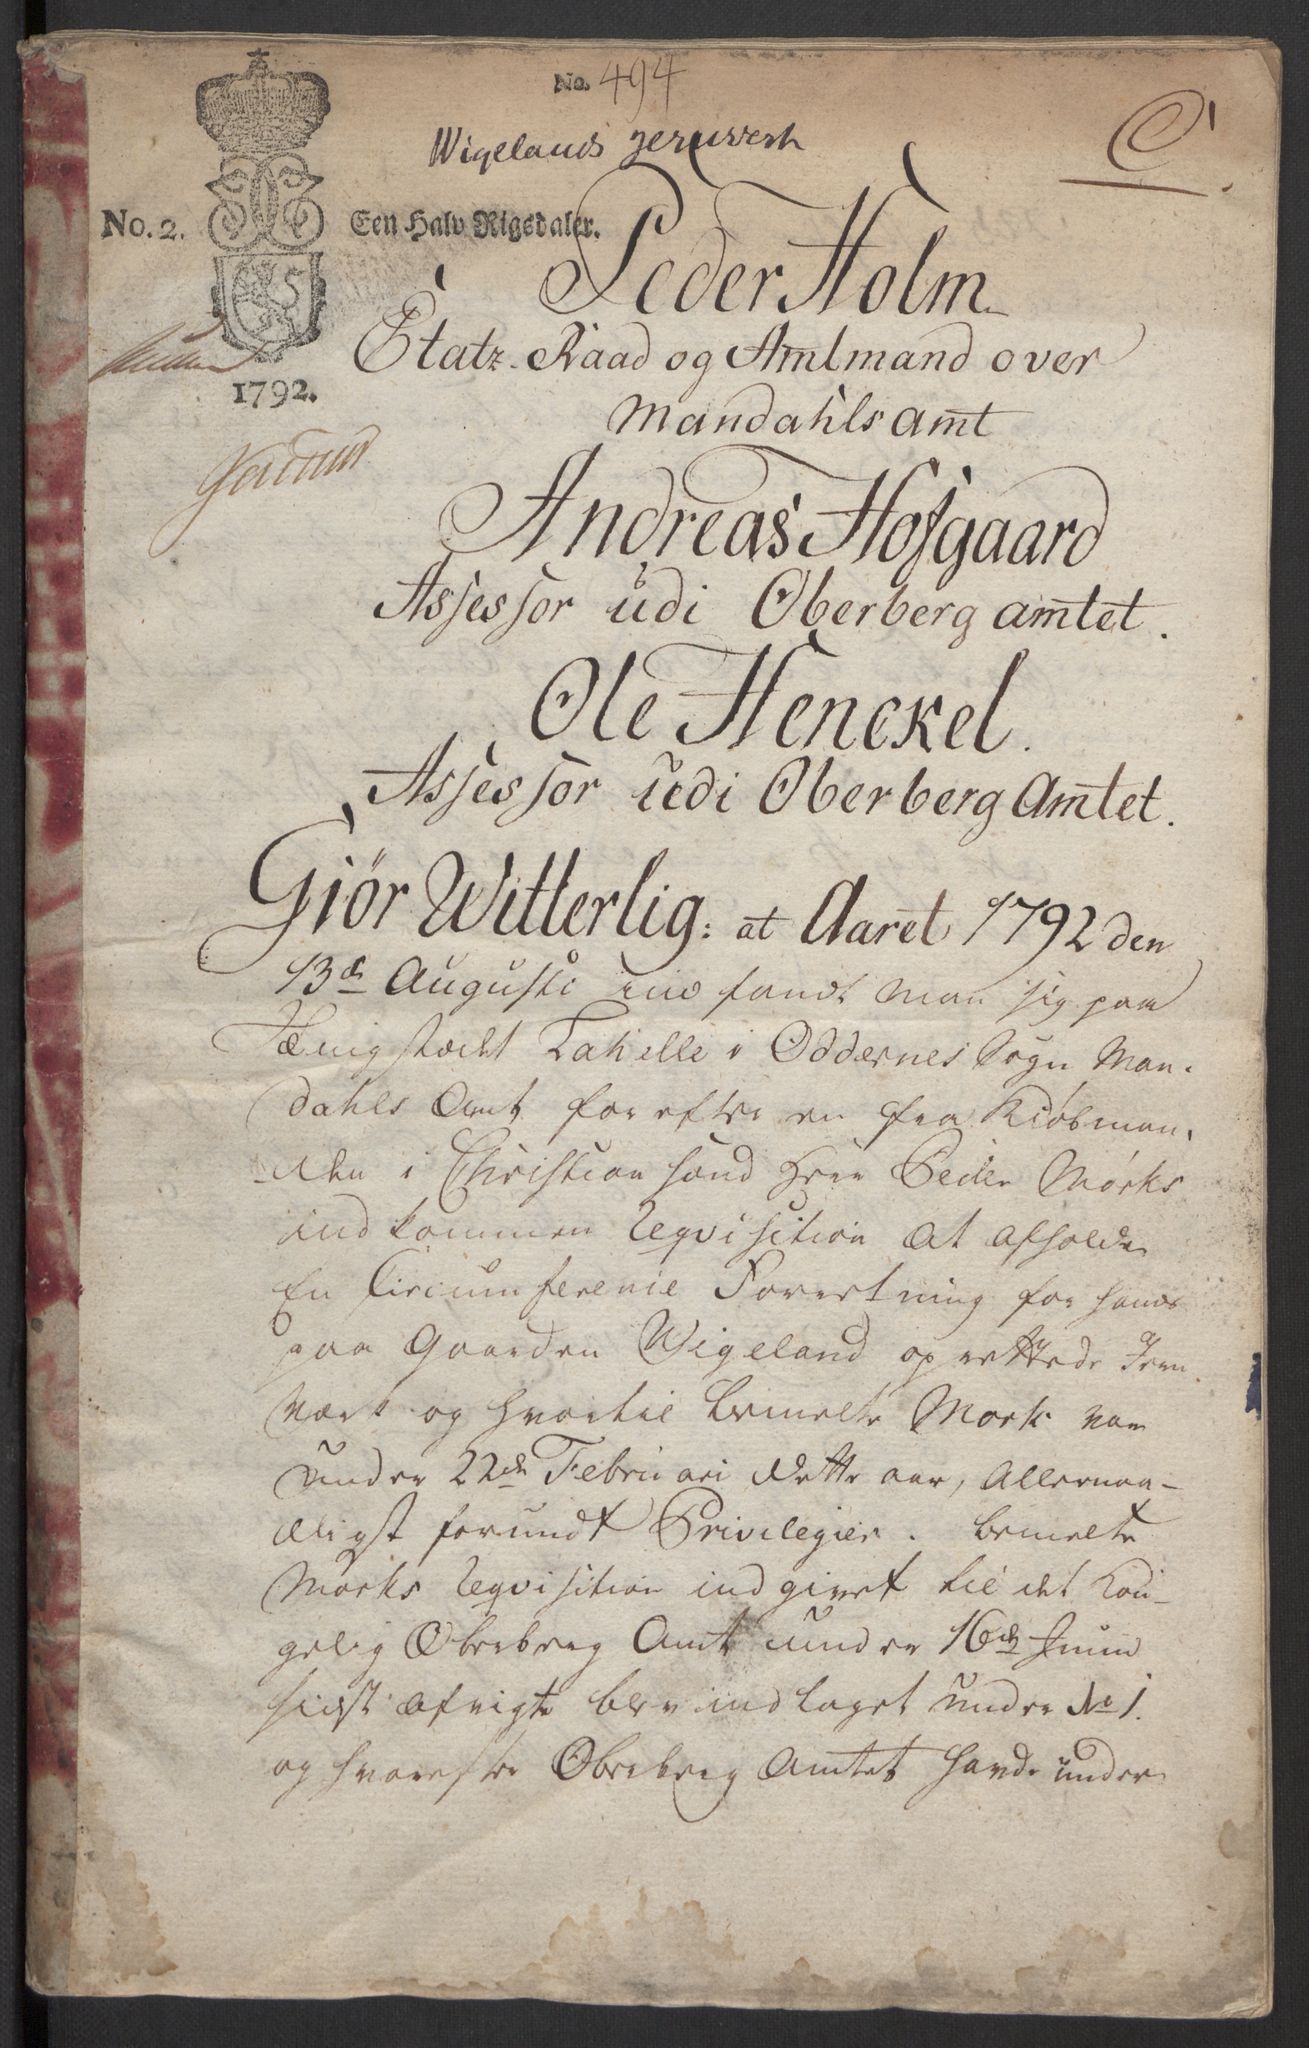 No. 494
Wigelands jernverk
C
No. 2. Een Halv Rigsdaler.
1792.
Peder Holm
Etatz-Raad og Amtmand over
Mandahls Amt
Andreas Hofgaard
Assessor udi Oberberg amtet.
Ole Henckel.
Assessor udi Oberberg Amtet.
Giør Witterlig: at Aaret 1792 den
13de Augusti indfandt man sig paa
Tingstædet Tahelle i Oddernes Sogn Man-
dahls Amt for efter en fra Kiøbman-
den i Christiansand Herr Peder Mørks
indkommen Reqvisition at afholde
En Circumference Forretning for hans
paa Gaarden Wigeland oprettede Jern
Værk og hvortil bemelte Mørk var
under 22de Februari dette aar, Allernaa-
digst forundt Privilegier. bemelte
Mørks Reqvisition indgivet til det Kon-
gelig Oberberg Amt under 16de Junii
sidst afvigte blev indtaget under No 1.
og hvorefter Oberberg Amtet havde under